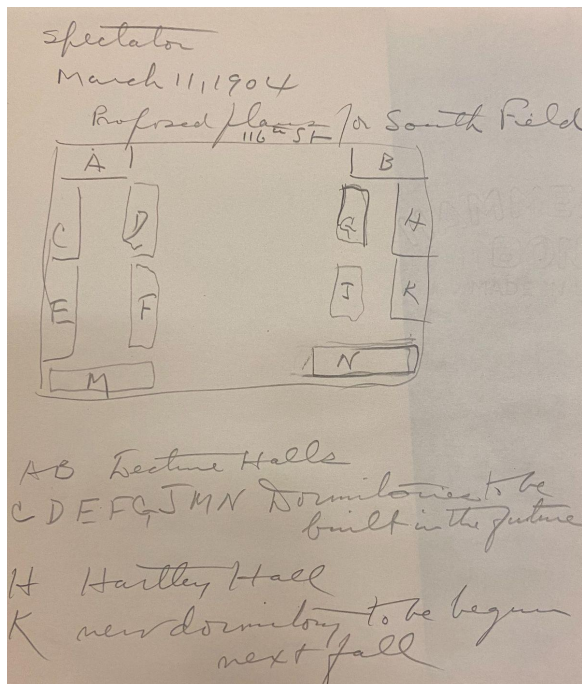 Spectator
March 11, 1904
Proposed plans for South Field
116th St
A B
C D G H
E F J K
M N
AB Lecture Halls
C D E F G J M N Dormitories to be
built in the future
H Hartley Hall
K new dormitory to be begun
next fall